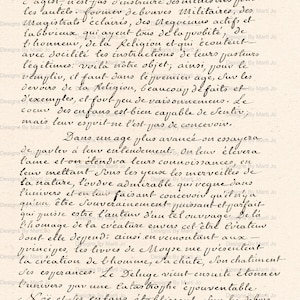 s'agit, n'est pas d'instruire des
les lauts : former de braves Militaires, des
Magistrats éclairés, des Négocians actifs et
laborieux qui ayent tous de la probité, de
l'honneur, de la Religion et qui écoutent
avec docilité les instructions de leurs pasteurs
légitimes. voilà notre objet, ainsi, pour le
remplir, il faut dans le premier age, sur les
devoirs de la Religion, beaucoup de faits et
d'exemples, et fort peu de raisonnemens. Le
coeur des enfans est bien capable de sentir,
mais leur esprit ne l'est pas de concevoir.
Dans un age plus avancé on essayera
de parler à leur entendement. On leur élevera
l'ame et on étendra leurs connoissances, en
leur mettant sous les yeux les merveilles de
la nature, l'ordre admirable qui regne dans
l'univers et en leur faisant concevoir qu'il n'y a
qu'un être Souverainement puissant et parfait
qui puisse être l'auteur d'un tel ouvrage. De là
l'homage de la créature envers cet être créateur
dont elle dépend : ainsi en remontant aux
principes, les livres de Moyse se presentent
la création de l'homme, sa chute, son chatiment
ses esperances. Le Deluge vient ensuite étonner
l'univers par une catastrophe épouventable.
et ses enfans